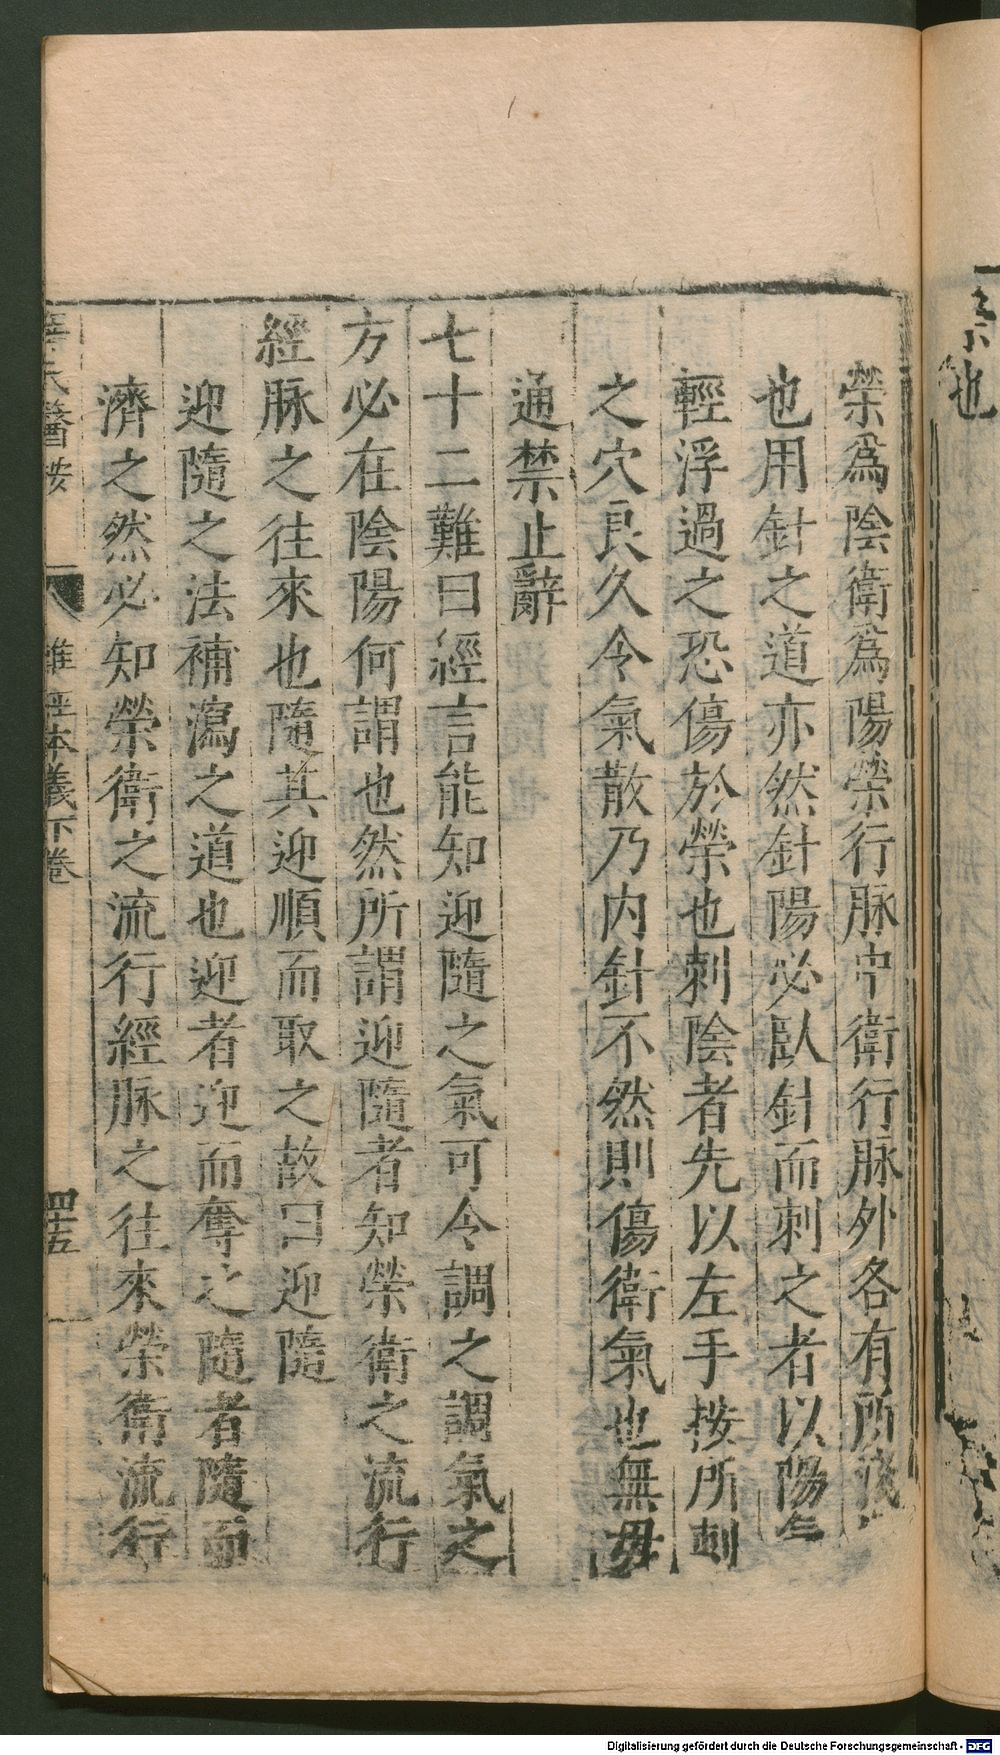 榮爲陰衛爲陽榮行脉中衛行脉外各有所淺
也用針之道亦然針陽必臥針而刺之者以陽气
輕浮過之恐傷於榮也刺陰者先以左手按所刺
之穴良久令氣散乃内針不然則傷衛氣也無毋
通禁止辭
七十二難曰經言能知迎隨之氣可令調之調氣之
方必在陰陽何謂也然所謂迎隨者知榮衛之流行
經脉之往來也隨其迎順而取之故曰迎隨
迎隨之法補瀉之道也迎者迎而奪之隨者隨而
濟之然必知榮衛之流行經脉之往來榮衛流行
氏醫按
難經本義下卷
四十五
也
Digitalisierung gefördert durch die Deutsche Forschungsgemeinschaft - DFG